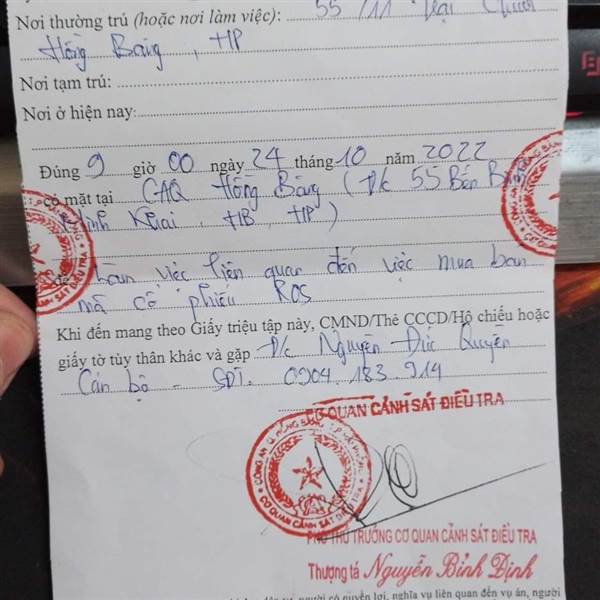 Nơi thường trú (hoặc nơi làm việc): 55/11
Hồng Bàng, HP
Nơi tạm trú:
Nơi ở hiện nay:
Đúng 9 giờ 00 ngày 24 tháng 10 năm 2022
có mặt tại CAQ Hồng Bàng (Đ/c 55 Bến Bính
Minh Khai, HB, HP)
để làm việc liên quan đến việc mua bán
mã cổ phiếu ROS
Khi đến mang theo Giấy triệu tập này, CMND/Thẻ CCCD/Hộ chiếu hoặc
giấy tờ tùy thân khác và gặp Đ/c Nguyễn Đức Quyền
Cán bộ - SĐT. 0904.183.914
CƠ QUAN CẢNH SÁT ĐIỀU TRA
CƠ QUAN CẢNH SÁT ĐIỀU TRA
PHÓ THỦ TRƯỞNG CƠ QUAN CẢNH SÁT ĐIỀU TRA
Thượng tá Nguyễn Bỉnh Định
người có quyền lợi, nghĩa vụ liên quan đến vụ án, người